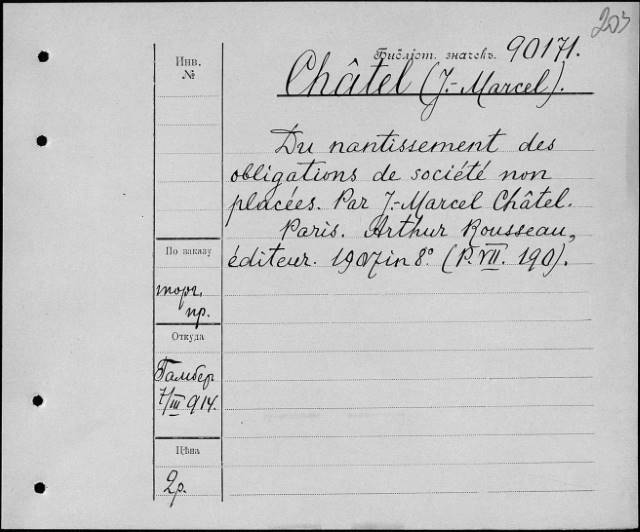 203
Инв.
№
Библіот. значекъ. 90171.
Châtel (J.-Marcel).
Du nantissement des
obligations de société non
placées. Par J.-Marcel Châtel.
Paris. Arthur Rousseau,
éditeur. 1907 in 8º (P. VII. 190).
По заказу
торг.
пр.
Откуда
Гамбер
7/III 914.
Цѣна
2р.